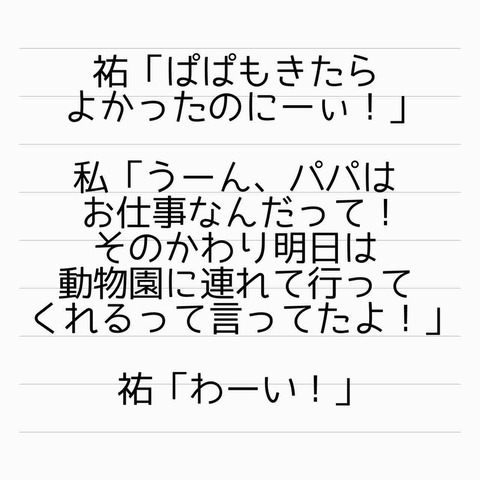 祐「ぱぱもきたら
よかったのにーぃ！」
私「うーん、パパは
お仕事なんだって！
そのかわり明日は
動物園に連れて行って
くれるって言ってたよ！」
祐「わーい！」